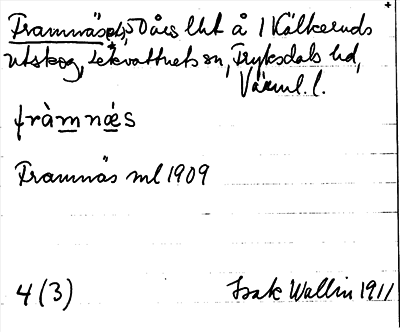 Framnäs, 50 års lht å 1 Kälkeruds
utskog, Lekvattnets sn, Fryksdals hd,
Värml. l.
fràmnǽs
Framnäs ml 1909
4 (3) Isak Wallin 1911